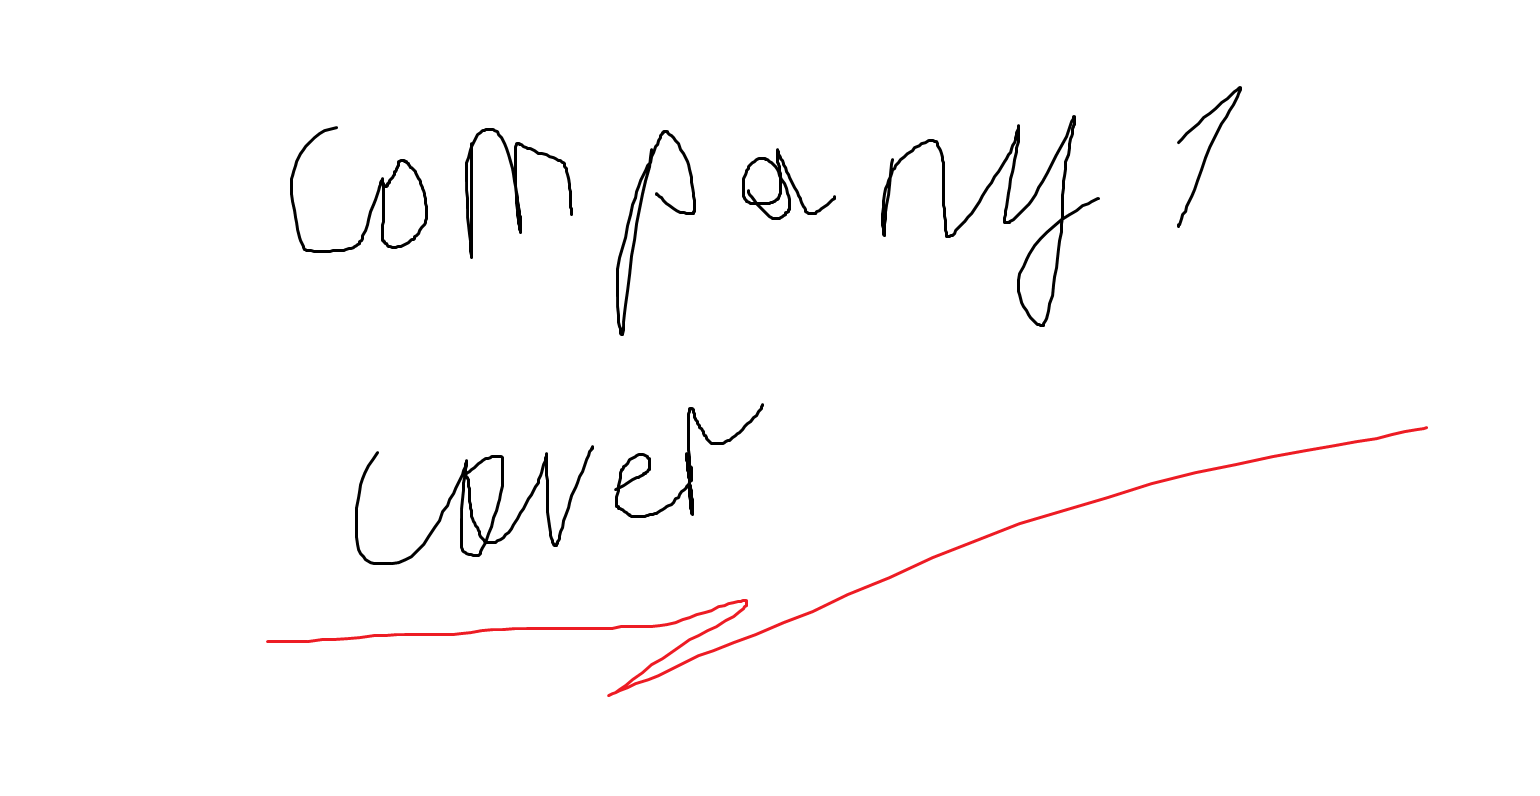 company 1
cover